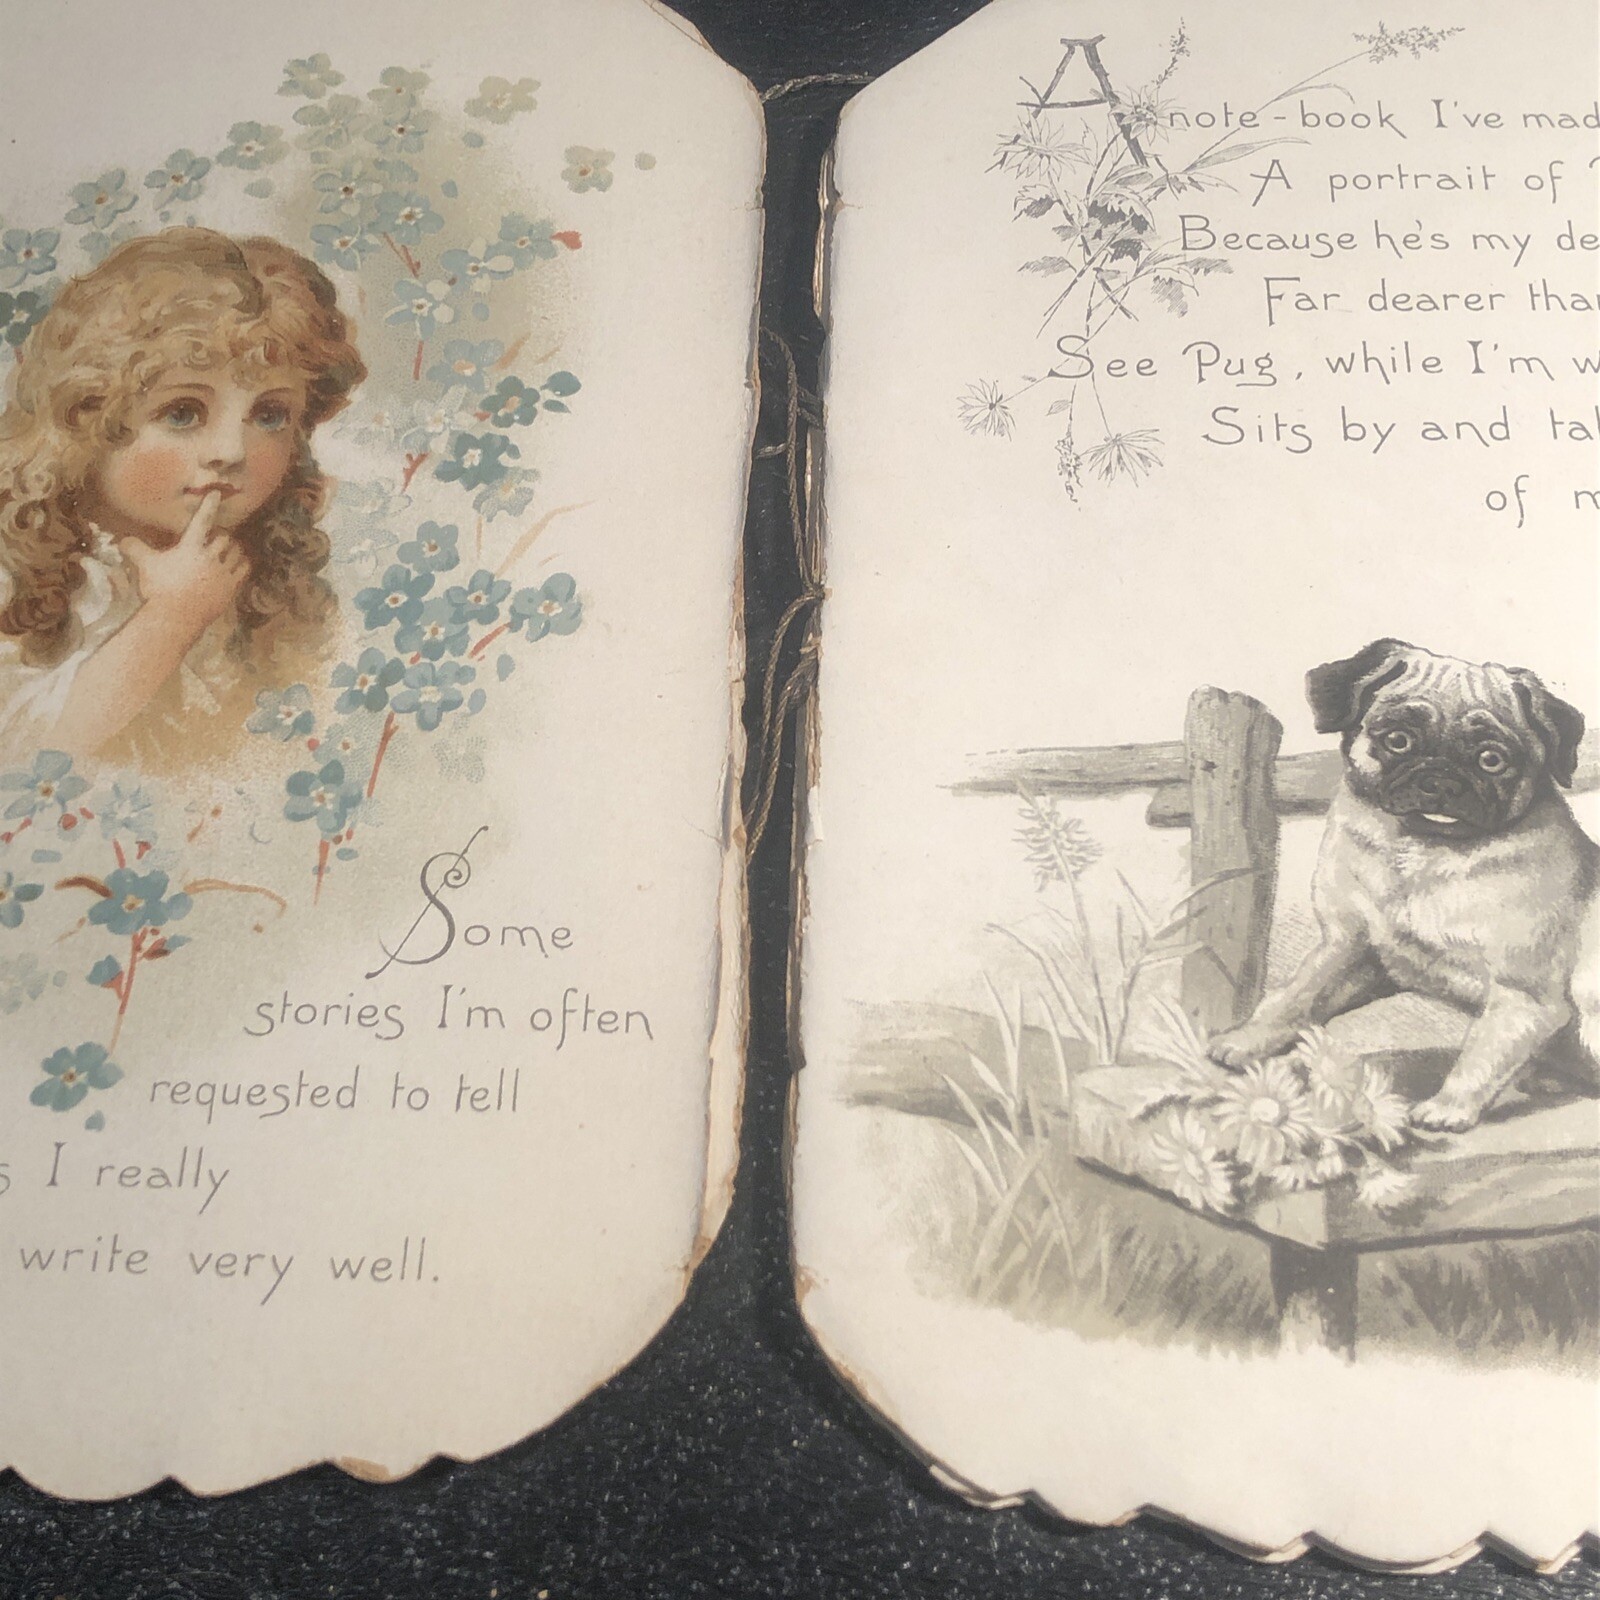 Some
stories I'm often
requested to tell
I really
write very well.
A note-book I've
A portrait of
Because he's my
Far dearer
See Pug, while I'm
Sits by and
of